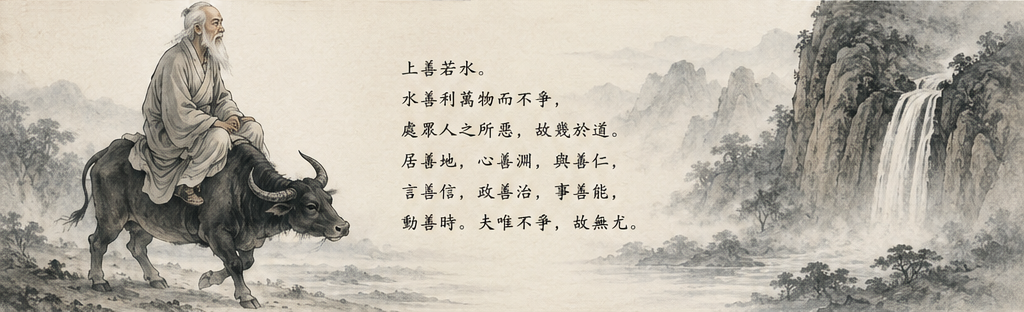 上善若水。
水善利萬物而不爭，
處眾人之所惡，故幾於道。
居善地，心善淵，與善仁，
言善信，政善治，事善能，
動善時。夫唯不爭，故無尤。